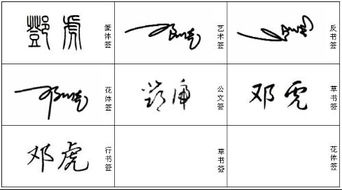 鄧虎 篆体签
邓虎 艺术签
邓虎 反书签
邓虎 花体签
鄧虎 公文签
邓虎 草书签
邓虎 行书签
草书签
花体签